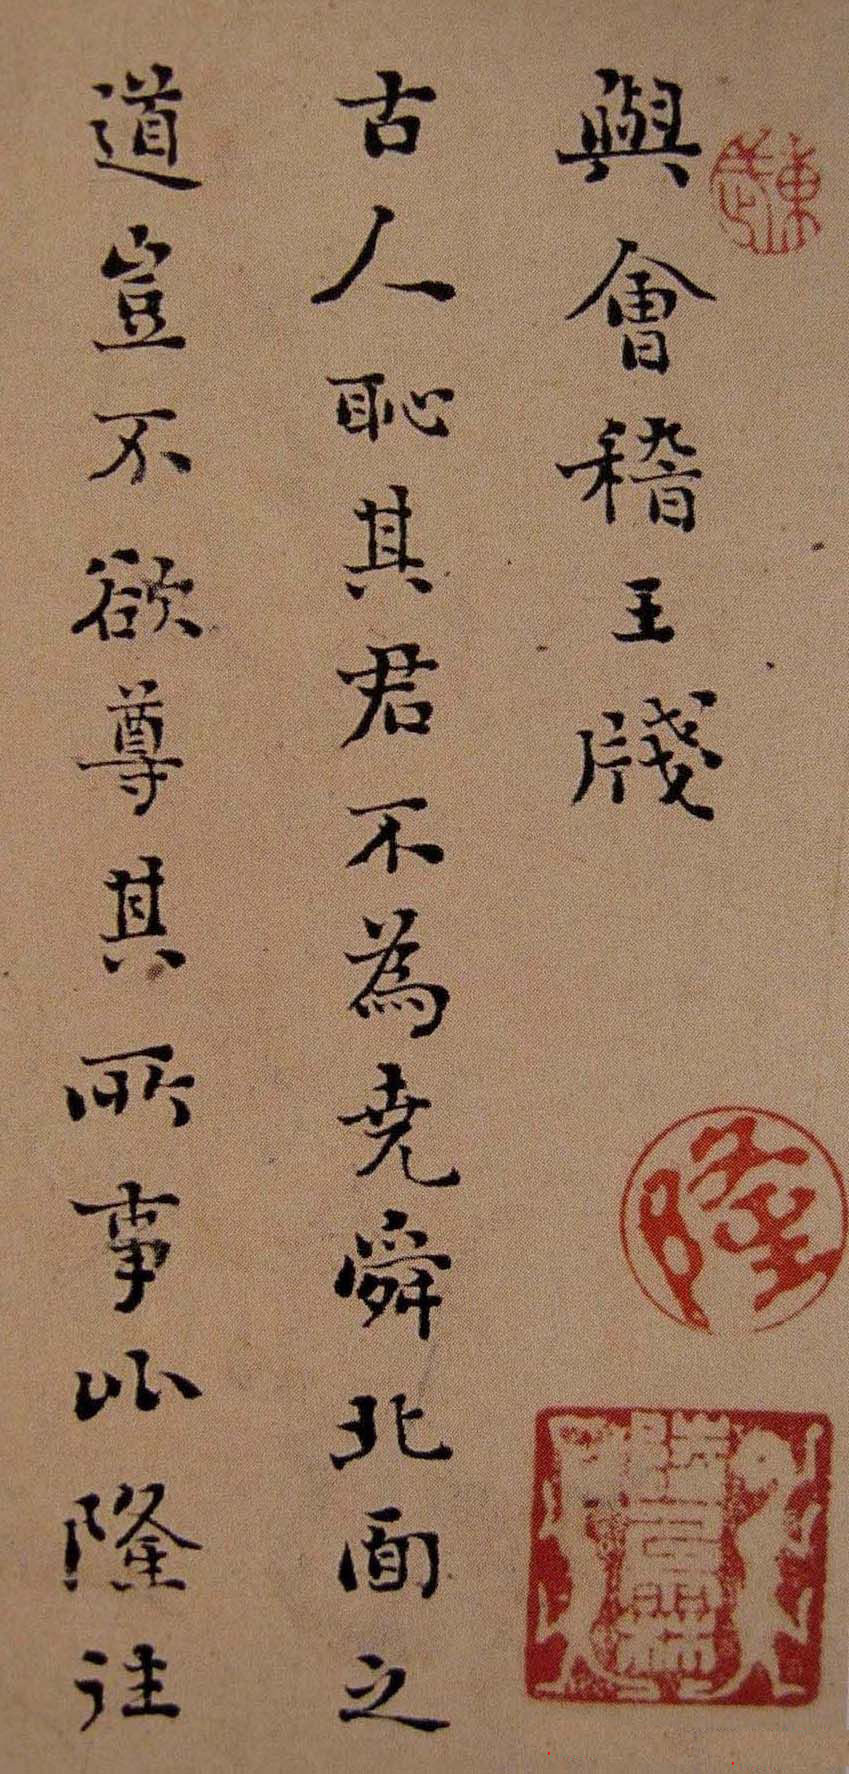 與會稽王牋
古人恥其君不為堯舜北面之
道豈不欲尊其所事比隆往
隆